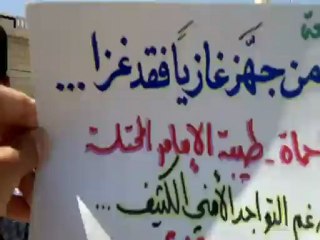 من جهَّز غازيًا فقد غزا ...
حماة - طيبة الإمام المحتلة
رغم التواجد الأمني الكثيف ...